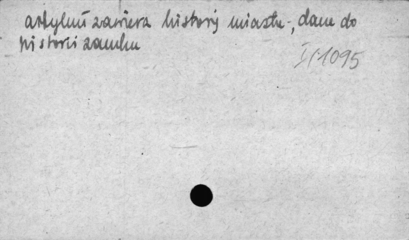 artykuł zawiera historię miasta, dane do
historii zamku
I/1095